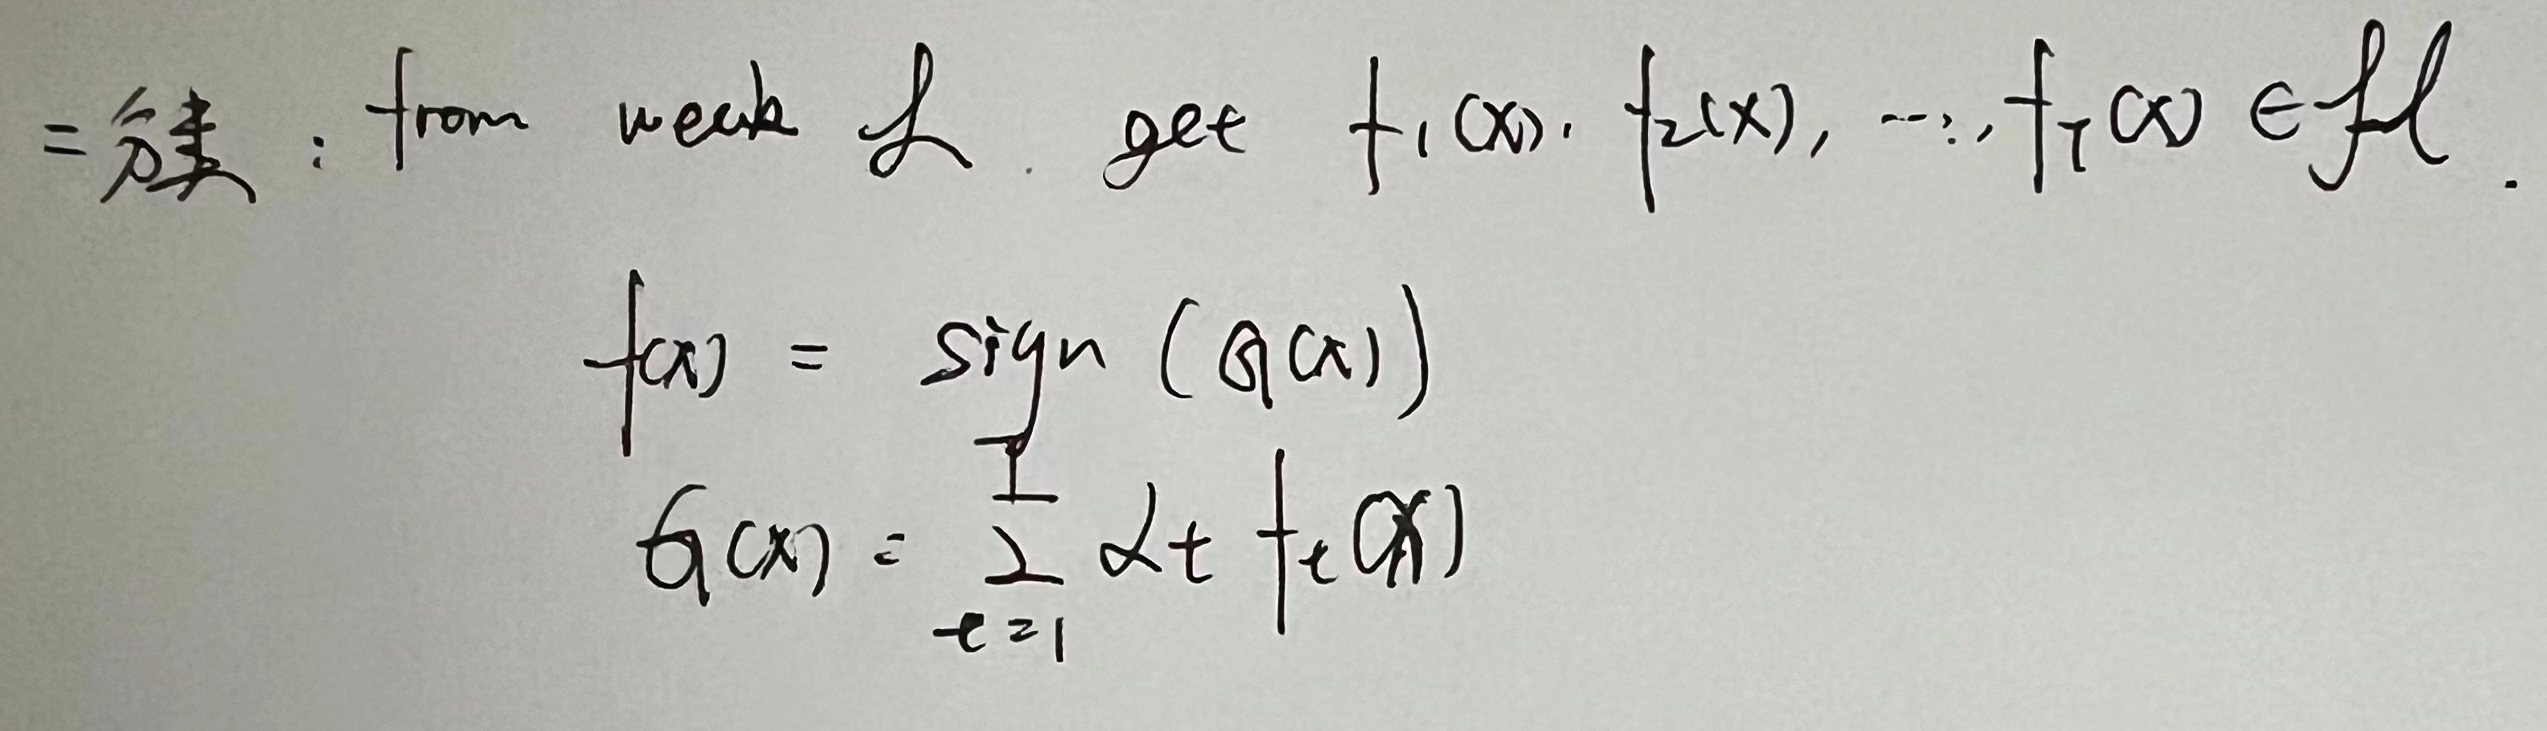 二分类: from weak L. get f₁(x), f₂(x), ..., f_T(x) ∈ H.
f(x) = sign (G(x))
G(x) = \sum_{t=1}^{T} α_t f_t(x)